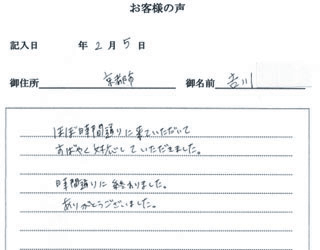 お客様の声
記入日 年 2 月 5 日
御住所 京都市 御名前 吉川
ほぼ時間通りに来ていただいて
すばやく対応していただきました。
時間通りに終わりました。
ありがとうございました。